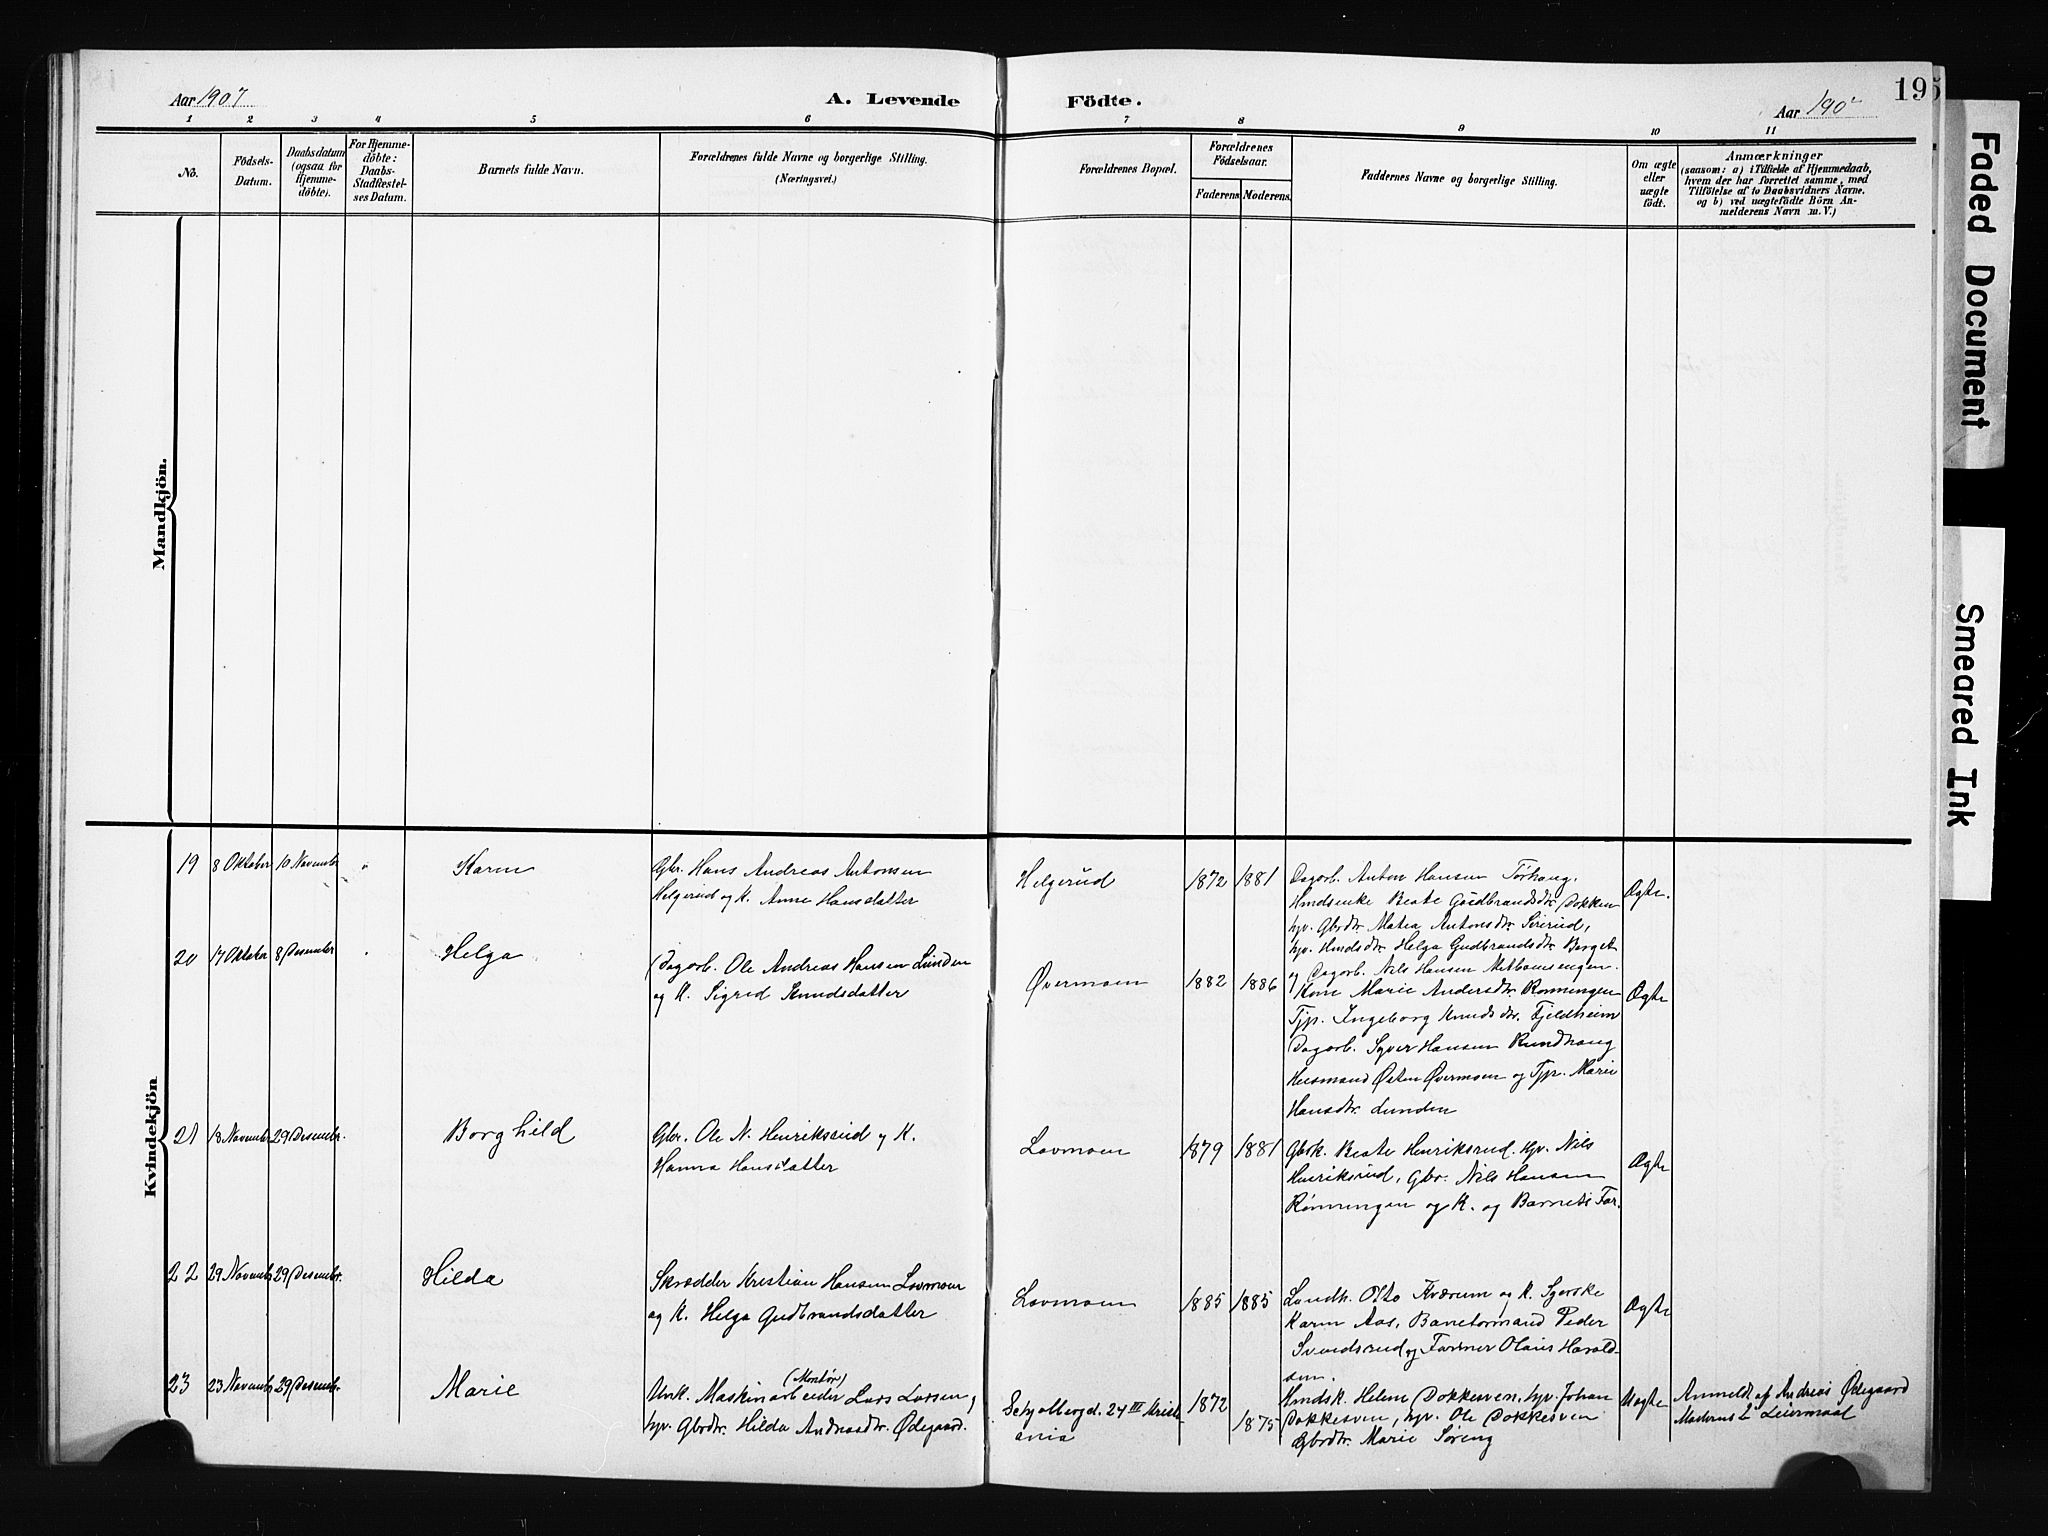 Aar 1907
A. Levende
Födte.
Aar 190
195
1
2
3
4
5
6
7
8
9
10
11
No.
Födsels-
Datum.
Daabsdatum
(ogsaa for
Hjemme-
döbte).
For Hjemme-
döbte:
Daabs-
Stadfæstel-
ses Datum.
Barnets fulde Navn.
Forældrenes fulde Navne og borgerlige Stilling.
(Næringsvei.)
Forældrenes Bopæl.
Forældrenes
Födselsaar.
Faderens
Moderens.
Faddernes Navne og borgerlige Stilling.
Om ægte
eller
uægte
födt.
Anmærkninger
(saasom: a) i Tilfælde af Hjemmedaab,
hvem der har forrettet samme, med
Tilföielse af to Daabsvidners Navne.
og b) ved uægtefödte Börn An-
melderens Navn m. V.)
Mandkjön.
Kvindekjön
19
8 Oktober
10 November
Karen
Gbr. Hans Andreas Antonsen
Helgerud og K. Anne Hansdatter
Helgerud
1872
1881
Dagarb. Anton Hansen Tørhaug,
Hmdsenke Beate Gudbrandsdtr. Dokken
hp. Gbrdtr. Matea Antonsdtr.
hp. Hmdsdtr. Helga Gudbrandsdtr. Berget
og Dagarb. Nils Hansen
Ægte.
20
17 Oktober
8 Desember
Helga
Dagarb. Ole Andreas Hansen Lunden
og K. Sigrid Knudsdatter
Øvermoen
1882
1886
Kone Marie Andersdtr. Rønningen
Tjp. Ingeborg Knudsdtr. Fjeldheim
Dagarb. Syver Hansen Rundhaug
Husmand Østen Øvermoen og Tjp. Marie
Hansdtr. Lunden
Ægte
21
18 November
29 Desember.
Borghild
Gbr. Ole N. Henriksrud og K.
Hanna Hansdatter
Lovmoen
1879
1881
Gbrk. Beate Henriksrud. hp. Nils
Henriksrud, Gbr. Nils Hansen
Rønningen og K. og Barnets Far.
Ægte
22
29 November
29 Desember.
Hilda
Skrædder Kristian Hansen Lovmoen
og K. Helga Gudbrandsdatter
Lovmoen
1885
1885
Landh. Otto Kværum og K.
Karen Aas, Baneformand Peder
Svendsrud og Farmer Olaus Harald-
sen.
Ægte
23
23 November
29 Desember.
Marie
(Montør)
Unk. Maskinarbeider Lars Larsen,
hp. Gbrdtr. Hilda Andreasdtr. Ødegaard.
24 III Kristi-
ania
1872
1875
Hmdsk. Helene Dokkesven, hp. Johan
Dokkesven, hp. Ole Dokkesven
Gbrdtr. Marie Søreng
Uægte
Anmeldt af Andreas Ødegaard
Moderens 2 Leiermaal
Faded Document
Smeared Ink